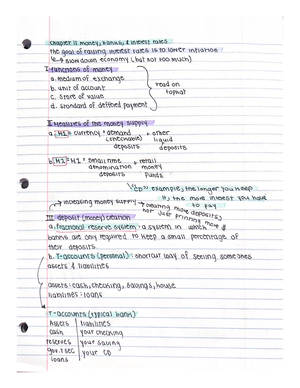 chapter 11 money, banks, & interest rates
the goal of raising interest rates is to lower inflation
↳ slow down economy (but not too much)
I functions of money
a. medium of exchange
b. unit of account
c. store of value
d. standard of deffered payment
read on tophat
II Measures of the money supply
a. M1 = currency + demand (checkable) deposits + other liquid deposits
b. = M1 + small time denomination deposits + retail money funds
"CD" example, the longer you keep
it, the more interest you have
to pay
↳ increasing money supply → creating more deposits,
not just printing more $
III deposit (money) creation
a. fractional reserve system: a system in which
banks are only required to keep a small percentage of
their deposits
b. T-accounts (personal): shorthand way of seeing someones
assets & liabilities
assets: cash, checking, savings, house
liabilities: loans
T-accounts (typical bank)
Assets | liabilities
cash | your checking
reserves | your saving
gov.t sec | your CD
loans